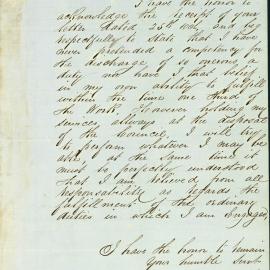 I have the honor to
acknowledge the receipt of your
letter dated 25th and beg
respectfully to state that I have
never pretended a competency for
the discharge, of so onerous a
duty nor have I that belief
in my own ability to fulfill
within the time one third of
the Works. However holding my
services always at the disposal
of the Council, I will try
to perform whatever I may be
able, at the same time it
must be perfectly understood
that I am relieved from all
responsability as regards the
fulfillment of the ordinary
duties in which I am Engaged,
I have the honor to remain
Your humble Servt